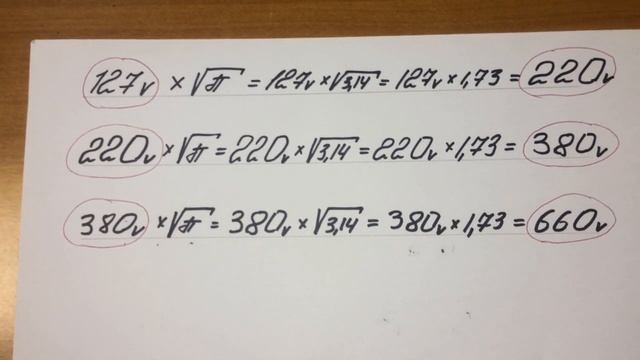 127v × √π = 127v × √3,14 = 127v × 1,73 = 220v
220v × √π = 220v × √3,14 = 220v × 1,73 = 380v
380v × √π = 380v × √3,14 = 380v × 1,73 = 660v